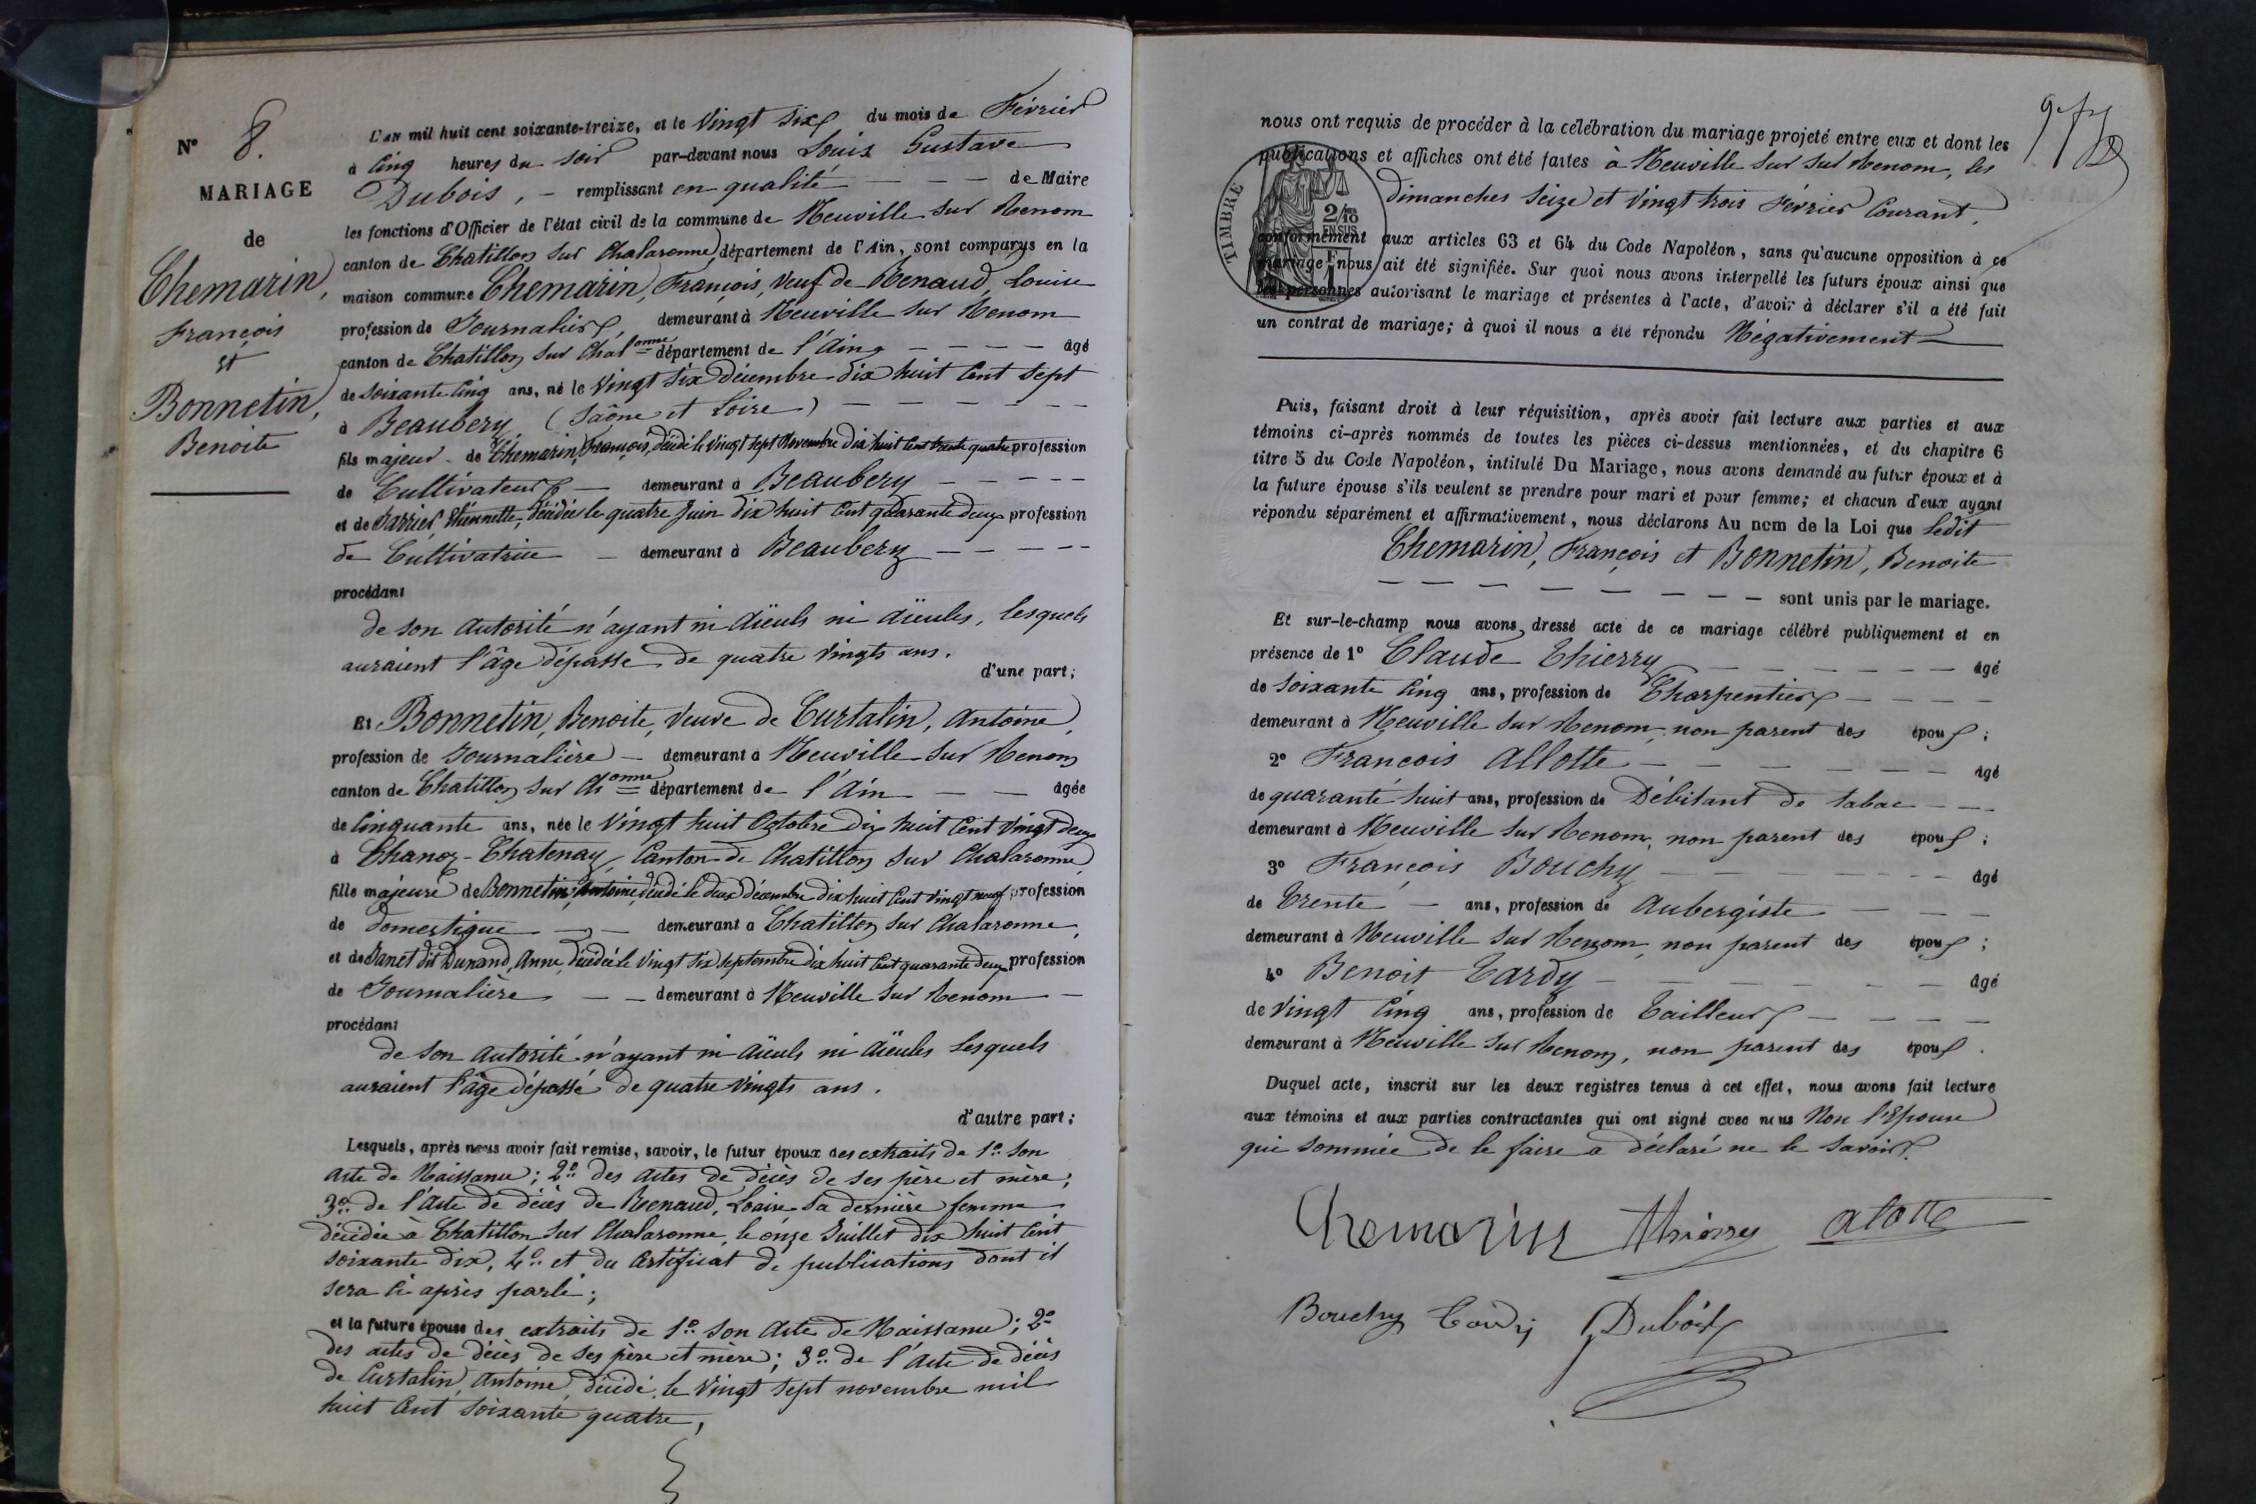 N° 8.
MARIAGE
de
Chemarin,
François
et
Bonnetin,
Benoite
L'an mil huit cent soixante-treize, et le vingt six du mois de Février
à cinq heures du soir par-devant nous Louis Gustave
Dubois, — remplissant en qualité — — — de Maire
les fonctions d'Officier de l'état civil de la commune de Neuville sur Renom
canton de Chatillon sur Chalaronne, département de l'Ain, sont comparus en la
maison commune Chemarin, François, veuf de Renaud, Louise
profession de Journalier, demeurant à Neuville sur Renom
canton de Chatillon sur Chalonne département de l'Ain — — — — âgé
de soixante cinq ans, né le vingt six décembre dix huit cent sept
à Beaubery (Saône et Loire) — — — — — —
fils majeur de Chemarin, François, décédé le vingt sept Novembre dix huit cent trente quatre profession
de Cultivateur — demeurant à Beaubery — — — — —
et de Barrier Etiennette, décédée le quatre Juin dix huit cent quarante deux profession
de Cultivatrice — demeurant à Beaubery — — — — —
procédant
de son autorité n'ayant ni aïeuls ni aïeules, lesquels
auraient l'âge dépassé de quatre vingts ans.
d'une part;
Et Bonnetin, Benoite, veuve de Curtalin, Antoine,
profession de journalière — demeurant à Neuville sur Renom
canton de Chatillon sur Chonne département de l'Ain — — âgée
de cinquante ans, née le vingt huit Octobre dix huit cent vingt deux
à Chanoz-Chatenay, Canton de Chatillon sur Chalaronne
fille majeure de Bonnetin, Antoine, décédé le deux décembre dix huit cent vingt neuf profession
de domestique — — demeurant à Chatillon sur Chalaronne,
et de Janet dit Durand, Anne, décédée le vingt six septembre dix huit cent quarante deux profession
de Journalière — — demeurant à Neuville sur Renom —
procédant
de son autorité n'ayant ni aïeuls ni aïeules lesquels
auraient l'âge dépassé de quatre vingts ans.
d'autre part;
Lesquels, après nous avoir fait remise, savoir, le futur époux des extraits de 1° son
acte de Naissance; 2° des actes de décès de ses père et mère;
3° de l'acte de décès de Renaud, Louise sa dernière femme
décédée à Chatillon sur Chalaronne, le onze Juillet dix huit cent
soixante dix, 4° et du certificat de publications dont il
sera ci après parlé;
et la future épouse des extraits de 1° son acte de Naissance; 2°
des actes de décès de ses père et mère; 3° de l'acte de décès
de Curtalin, Antoine, décédé le vingt sept novembre mil
huit cent soixante quatre,
nous ont requis de procéder à la célébration du mariage projeté entre eux et dont les
publications et affiches ont été faites à Neuville sur sur Renom, les
dimanches seize et vingt trois Février Courant,
conformément aux articles 63 et 64 du Code Napoléon, sans qu'aucune opposition à ce
mariage nous ait été signifiée. Sur quoi nous avons interpellé les futurs époux ainsi que
les personnes autorisant le mariage et présentes à l'acte, d'avoir à déclarer s'il a été fait
un contrat de mariage; à quoi il nous a été répondu Négativement
TIMBRE
2/10
EN SUS
Puis, faisant droit à leur réquisition, après avoir fait lecture aux parties et aux
témoins ci-après nommés de toutes les pièces ci-dessus mentionnées, et du chapitre 6
titre 5 du Code Napoléon, intitulé Du Mariage, nous avons demandé au futur époux et à
la future épouse s'ils veulent se prendre pour mari et pour femme; et chacun d'eux ayant
répondu séparément et affirmativement, nous déclarons Au nom de la Loi que ledit
Chemarin, François et Bonnetin, Benoite
— — — — — — — — sont unis par le mariage.
Et sur-le-champ nous avons dressé acte de ce mariage célébré publiquement et en
présence de 1° Claude Thierry — — — — — — âgé
de soixante cinq ans, profession de Charpentier — — — —
demeurant à Neuville sur Renom, non parent des époux;
2° François Allotte — — — — — — âgé
de quarante huit ans, profession de Débitant de tabac — —
demeurant à Neuville sur Renom, non parent des époux;
3° François Bouchy — — — — — — âgé
de Trente — ans, profession de Aubergiste — — —
demeurant à Neuville sur Renom, non parent des époux;
4° Benoit Tardy — — — — — — âgé
de vingt cinq ans, profession de Tailleur — — — —
demeurant à Neuville sur Renom, non parent des époux.
Duquel acte, inscrit sur les deux registres tenus à cet effet, nous avons fait lecture
aux témoins et aux parties contractantes qui ont signé avec nous Non l'Epouse
qui sommée de le faire a déclaré ne le savoir.
Chemarin Thierry alotte
Bouchy Tardy Dubois